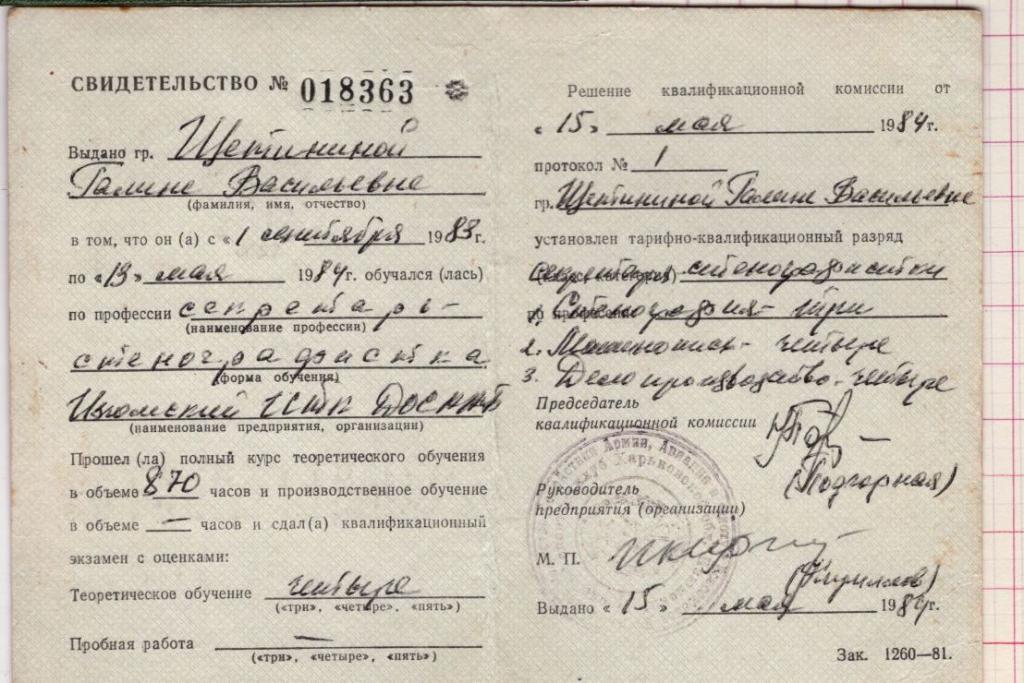 СВИДЕТЕЛЬСТВО № 018363
Выдано гр. Щетининой
Галине Васильевне
(фамилия, имя, отчество)
в том, что он (а) с «1 сентября 1983г.
по «13» мая 1984г. обучался (лась)
по профессии секретарь-
(наименование профессии)
стенографистка
(форма обучения)
Изюмский СТК ДОСААФ
(наименование предприятия, организации)
Прошел (ла) полный курс теоретического обучения
в объеме 870 часов и производственное обучение
в объеме — часов и сдал(а) квалификационный
экзамен с оценками:
Теоретическое обучение четыре
(«три», «четыре», «пять»)
Пробная работа —
(«три», «четыре», «пять»)
Решение квалификационной комиссии от
«15» мая 1984г.
протокол № 1
гр. Щетининой Галине Васильевне
установлен тарифно-квалификационный разряд
секретаря стенографистки
Стенография - три
2. Машинопись - четыре
3. Делопроизводство - четыре
Председатель
квалификационной комиссии
(Подгорная)
Руководитель
предприятия (организации)
М. П.
Выдано «15» мая 1984г.
Зак. 1260—81.